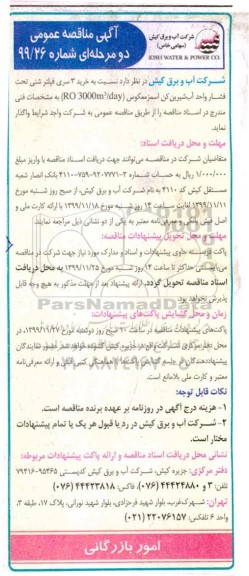 شرکت آب و برق کیش
(سهامی خاص)
KISH WATER & POWER CO.
آگهی مناقصه عمومی
دو مرحله‌ای شماره ۹۹/۲۶
شرکت آب و برق کیش در نظر دارد نسبت به خرید ۳ سری فیلتر شنی تحت
فشار واحد آب‌شیرین‌کن اسمزمعکوس (RO 3000m³/day) به مشخصات فنی
مندرج در اسناد مناقصه را از طریق مناقصه عمومی به شرکت واجد شرایط واگذار
نماید.
مهلت و محل دریافت اسناد:
متقاضیان شرکت در مناقصه می‌توانند جهت دریافت اسناد مناقصه با واریز مبلغ
۱/۰۰۰/۰۰۰ ریال به حساب شماره بانک انصار شعبه
مستقل کیش کد ۴۱۱۰ به نام شرکت آب و برق کیش، از صبح روز شنبه مورخ
۱۳۹۹/۱۱/۱۱ لغایت ساعت ۱۴ روز شنبه مورخ ۱۳۹۹/۱۱/۱۸ با ارائه کارت ملی و
اصل فیش واریزی و معرفی‌نامه معتبر به یکی از دو نشانی ذیل مراجعه نمایند.
مهلت و محل تحویل پیشنهادات مناقصه:
پاکت دربسته حاوی پیشنهادات و اسناد و مدارک مورد نیاز جهت شرکت در مناقصه
می‌بایستی حداکثر تا ساعت ۱۴ روز شنبه مورخ ۱۳۹۹/۱۱/۲۵ به محل دریافت
اسناد مناقصه تحویل گردد. ارائه پیشنهاد بعد از مهلت مذکور به هیچ وجه قابل
پذیرش نخواهد بود.
زمان و محل گشایش پاکت‌های پیشنهادات:
پاکت‌های پیشنهادات مناقصه در ساعت روز دوشنبه مورخ ۱۳۹۹/۱۱/۲۷، در
محل دفتر مرکزی شرکت واقع در جزیره کیش گشوده خواهد شد. حضور نمایندگان
پیشنهاددهندگان در جلسه گشایش پاکت‌ها با هماهنگی کمیسیون و ارائه معرفی‌نامه
معتبر و کارت ملی بلامانع است.
نکات قابل توجه:
۱- هزینه درج آگهی در روزنامه بر عهده برنده مناقصه است.
۲- شرکت آب و برق کیش در رد یا قبول هر یک یا تمام پیشنهادات
مختار است.
نشانی محل دریافت اسناد مناقصه و ارائه پاکت پیشنهادات مربوطه:
دفتر مرکزی: جزیره کیش، شرکت آب و برق کیش کدپستی ۷۹۴۱۶-۹۵۴۶۵
تلفن: ۳ و ۴۴۴۲۴۸۸۰ (۰۷۶)، فاکس: ۴۴۴۲۳۸۱۸ (۰۷۶)
تهران: شهرک‌غرب، بلوار شهید فرحزادی، بلوار شهید نورانی، پلاک ۱۷، طبقه ۳،
واحد ۶ تلفکس: ۲۲۰۷۶۱۵۷ (۰۲۱)
امور بازرگانی
ParsNamadData